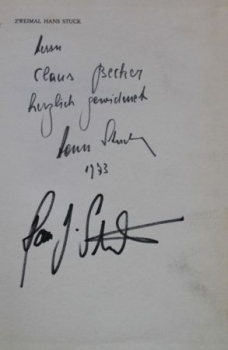 ZWEIMAL HANS STUCK
Herrn
Claus Becker
herzlich gewidmet
Hans Stuck
1973
Hans J. Stuck